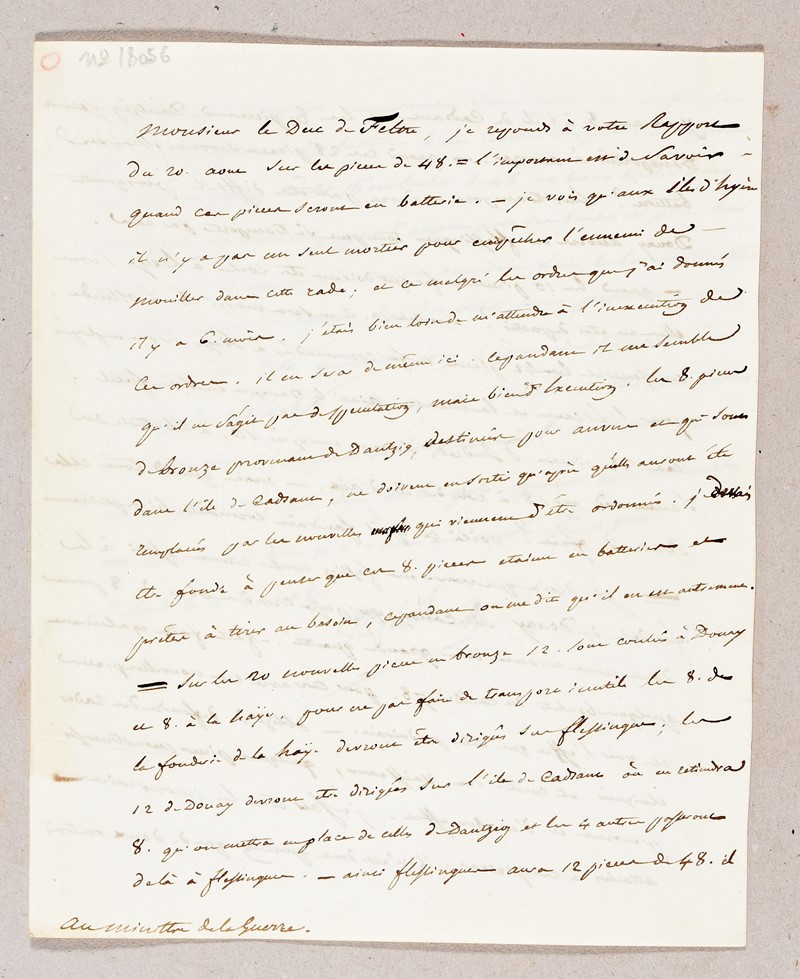 No 18056
Monsieur le Duc de Feltre, je reponds à votre Rapport
du 20. aout sur les pieces de 48. = l'important est de Savoir
quand ces pieces seront en batterie. — je vois qu'aux Iles d'hyères
il n'y a pas un seul mortier pour empêcher l'ennemi de —
mouiller dans cette rade; et ce malgré les ordres que j'ai donnés
il y a 6. mois. j'étais bien loin de m'attendre à l'inexecution de
ces ordres. il en sera de même ici. cependant il me semble
qu'il ne s'agit pas de speculation, mais bien d'Execution. les 8. pieces
de bronze provenant de Dantzig, destinées pour anvers et qui sont
dans l'ile de Cadsant, ne doivent en sortir qu'après qu'elles auront été
remplacées par les nouvelles qui viennent d'être ordonnées. je
être fondé à penser que ces 8. pieces etaient en batteries et
prêtes à tirer au besoin, cependant on me dit qu'il en est autrement.
= Sur les 20 nouvelles pieces en bronze 12. sont coulées à Douay
et 8. à la haÿe. pour ne pas faire de transport inutile les 8. de
la fonderie de la haye devront être dirigées sur flessingue; les
12 de Douay devront être dirigées sur l'ile de Cadsant où on retiendra
8. qu'on mettra en place de celles de Dantzig et les 4 autres passeront
delà à flessingue. — ainsi flessingue aura 12 pieces de 48. il
au ministre de la Guerre.